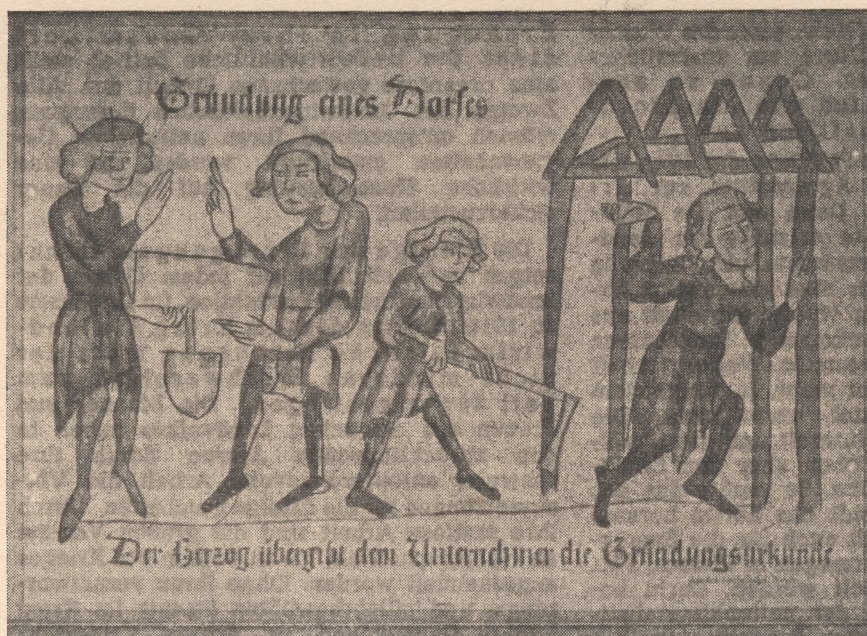 Gründung eines Dorfes
Der Herzog übergibt dem Unternehmer die Gründungsurkunde